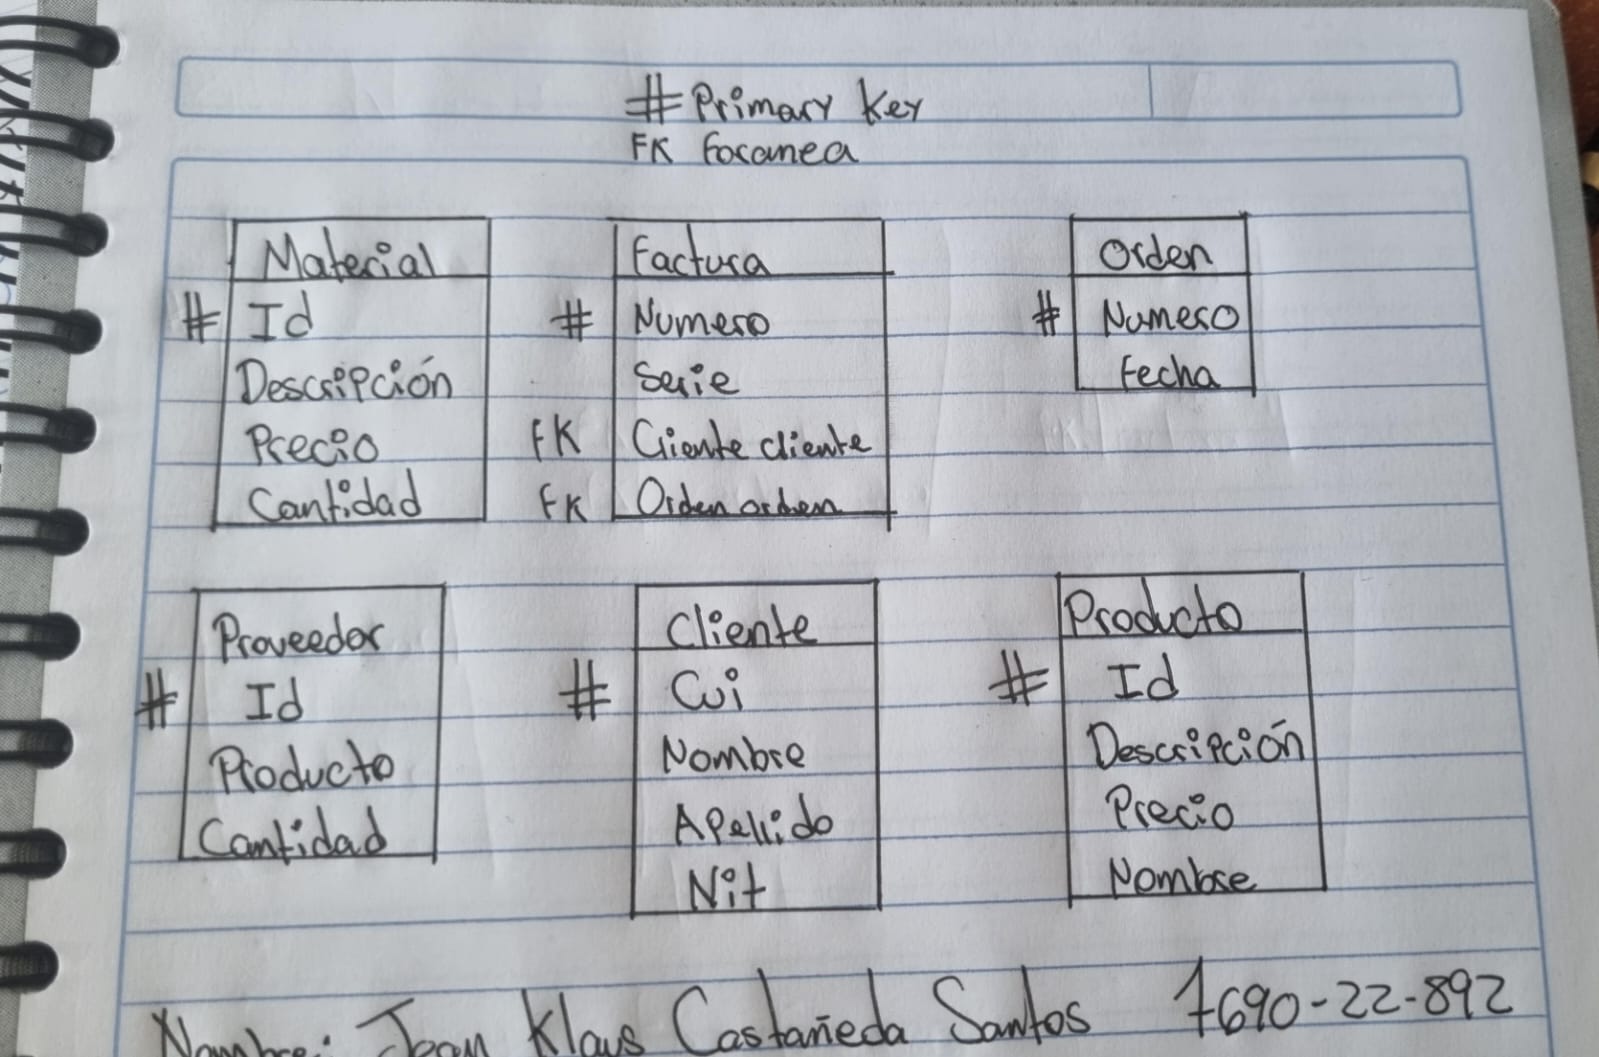 # Primary Key
FK Foranea
Material
# Id
Descripción
Precio
Cantidad
Factura
# Numero
Serie
FK Cliente cliente
FK Orden orden
Orden
# Numero
Fecha
Proveedor
# Id
Producto
Cantidad
Cliente
# Cui
Nombre
Apellido
Nit
Producto
# Id
Descripción
Precio
Nombre
Nombre: Jean Klaus Castañeda Santos 7690-22-892